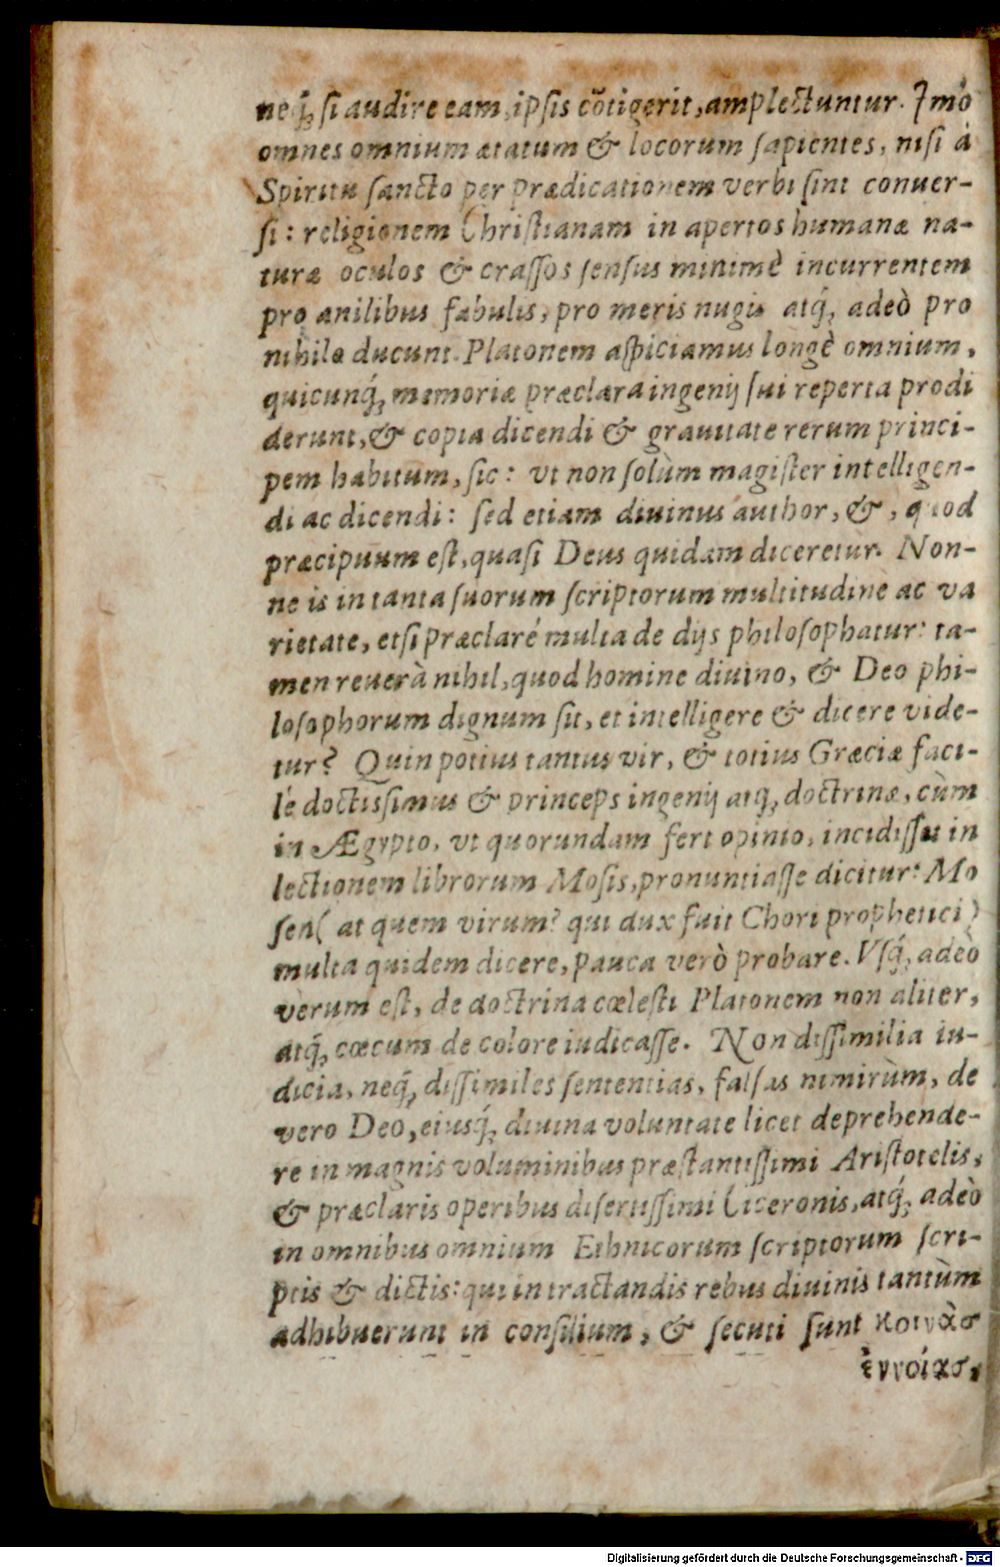 neq́; ſi audire eam, ipſis cõtigerit, amplectuntur. Imò
omnes omnium ætatum & locorum ſapientes, niſi à
Spiritu ſancto per prædicationem verbi ſint conuer-
ſi: religionem Chriſtianam in apertos humanæ na-
turæ oculos & craſſos ſenſus minimè incurrentem
pro anilibus fabulis, pro meris nugis atq́; adeò pro
nihilo ducunt. Platonem aſpiciamus longè omnium,
quicunq́; memoriæ præclara ingenij ſui reperta prodi
derunt, & copia dicendi & grauitate rerum princi-
pem habitum, ſic: vt non ſolùm magiſter intelligen-
di ac dicendi: ſed etiam diuinus author, &, quod
præcipuum eſt, quaſi Deus quidam diceretur. Non-
ne is in tanta ſuorum ſcriptorum multitudine ac va
rietate, etſi præclaré multa de dijs philoſophatur: ta-
men reuerà nihil, quod homine diuino, & Deo phi-
loſophorum dignum ſit, et intelligere & dicere vide-
tur? Quin potius tantus vir, & totius Græciæ faci-
lé doctisſimus & princeps ingenij atq́; doctrinæ, cùm
in Ægypto, vt quorundam fert opinio, incidiſſet in
lectionem librorum Moſis, pronuntiaſſe dicitur: Mo
ſen( at quem virum? qui dux fuit Chori prophetici)
multa quidem dicere, pauca verò probare. Vſq́; adeò
verum eſt, de doctrina cœleſti Platonem non aliter,
atq́; cœcum de colore iudicaſſe. Non diſſimilia iu-
dicia, neq́; diſſimiles ſententias, falſas nimirùm, de
vero Deo, eiusq́; diuina voluntate licet deprehende-
re in magnis voluminibus præſtantiſſimi Ariſtotelis,
& præclaris operibus diſertiſſimi Ciceronis, atq́; adeò
in omnibus omnium Ethnicorum ſcriptorum ſcri-
ptis & dictis: qui in tractandis rebus diuinis tantùm
adhibuerunt in conſilium, & ſecuti ſunt κοινὰσ
ἐννοίασ,
Digitalisierung gefördert durch die Deutsche Forschungsgemeinschaft - DFG